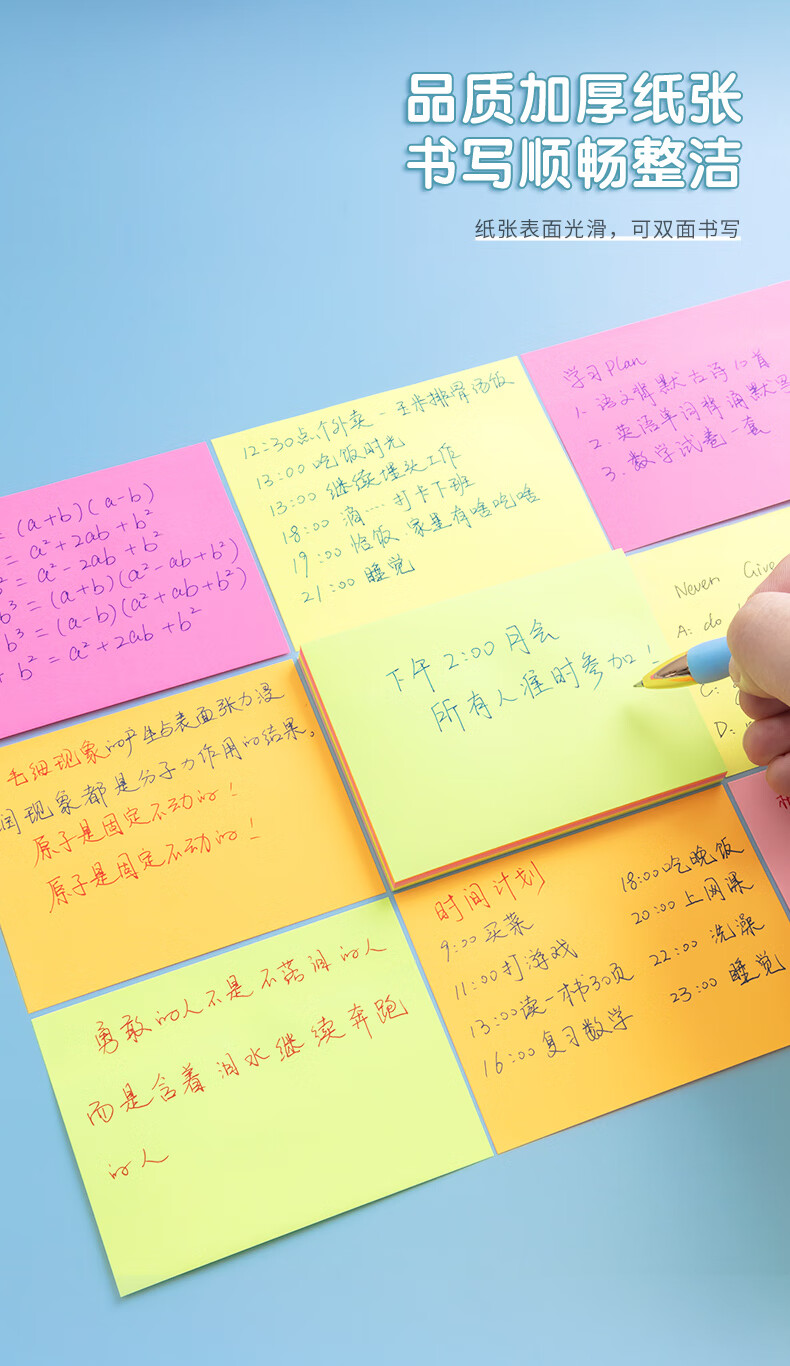 品质加厚纸张
书写顺畅整洁
纸张表面光滑，可双面书写
学习Plan
1. 语文背默古诗10首
2. 英语单词背诵默
3. 数学试卷一套
12:30点个外卖-玉米排骨汤饭
13:00 吃饭时光
13:00 继续埋头工作
18:00 滴····打卡下班
19:00 恰饭 家里有啥吃啥
21:00 睡觉
= (a+b)(a-b)
= a²+2ab+b²
= a²-2ab+b²
b³ = (a+b)(a²-ab+b²)
b³ = (a-b)(a²+ab+b²)
+ b² = a²+2ab+b²
Never Give
A: do
C:
D:
下午2:00月会
所有人准时参加!
毛细现象的产生与表面张力浸
润现象都是分子力作用的结果。
原子是固定不动的!
原子是固定不动的!
时间计划
9:00买菜
11:00打游戏
13:00读一本书30页
16:00复习数学
18:00吃晚饭
20:00上网课
22:00 洗澡
23:00 睡觉
勇敢的人不是不落泪的人
而是含着泪水继续奔跑
的人